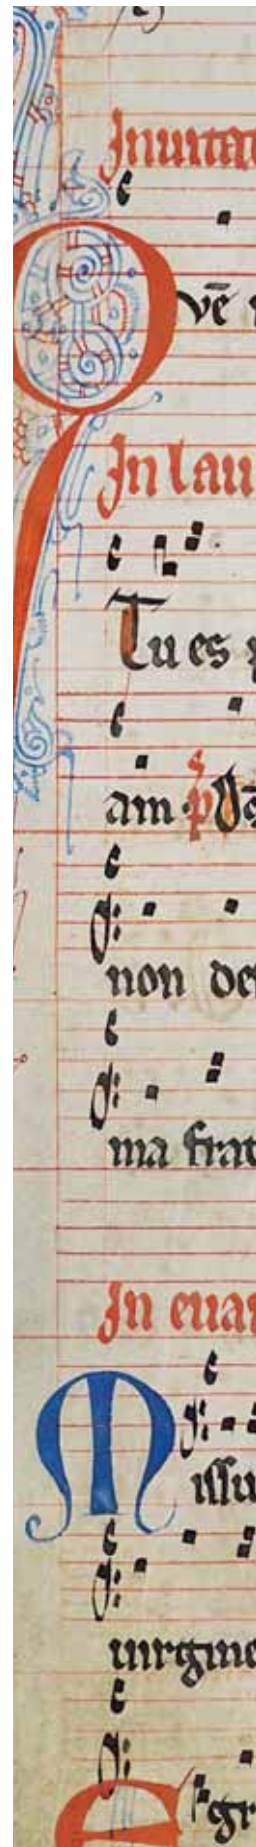 Inuitat
vē
In lau
Tu es
am
non de
ma frat
In euan
Missu
uirgine
Egr